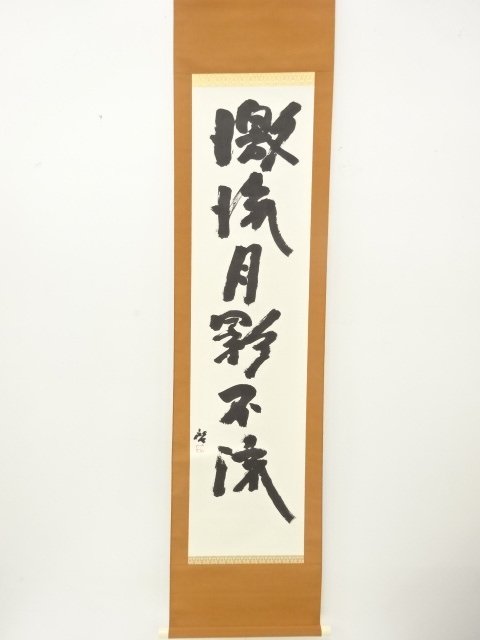 激流月影不流